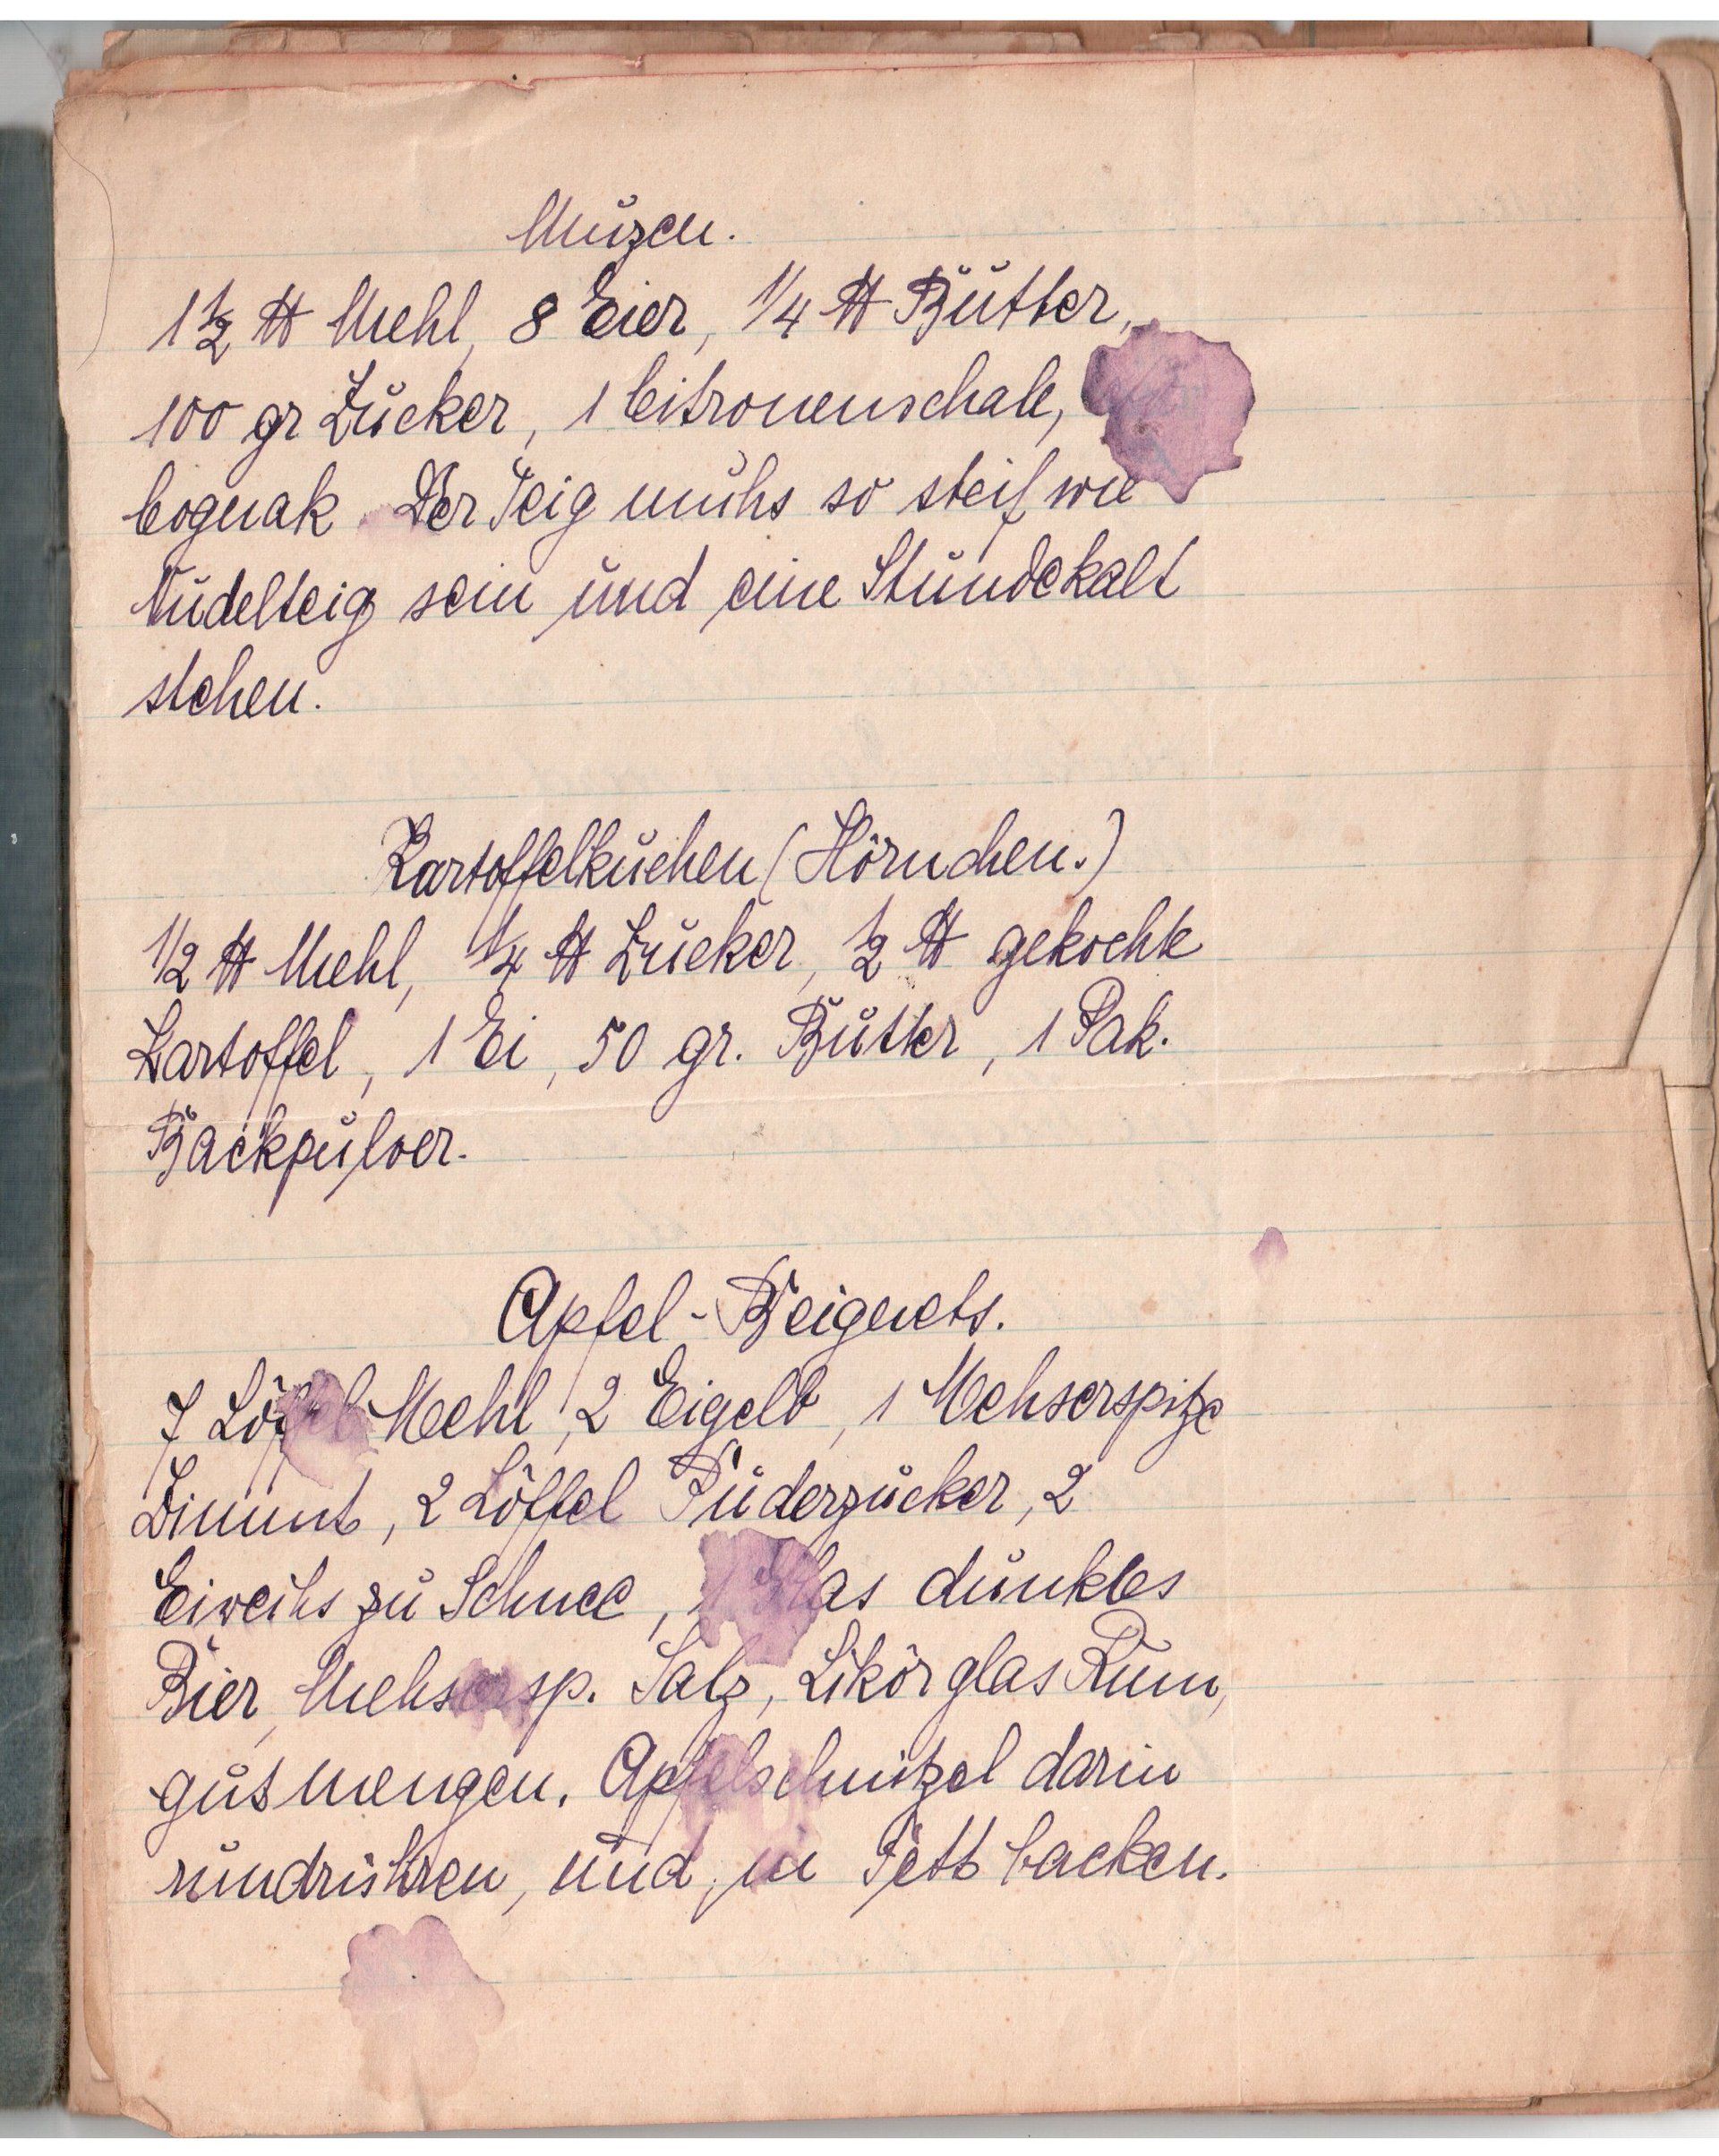 Muzen.
1 1/2 ℔ Mehl, 8 Eier, 1/4 ℔ Butter,
100 gr Zucker, 1 Citronenschale,
Cognak. Der Teig muhs so steif wie
Nudelteig sein und eine Stunde kalt
stehen.
Kartoffelkuchen (Hörnchen.)
1/2 ℔ Mehl, 1/4 ℔ Zucker, 1/2 ℔ gekochte
Kartoffel, 1 Ei, 50 gr. Butter, 1 Pak.
Backpulver.
Apfel-Beignets.
7 Löffel Mehl, 2 Eigelb, 1 Mehserspitze
Zimmt, 2 Löffel Puderzucker, 2
Eiweihs zu Schnee, 1 Glas dunkles
Bier, Mehsersp. Salz, Likörglas Rum,
gut mengen. Apfelschnitzel darin
rundrühren, und in Fett backen.